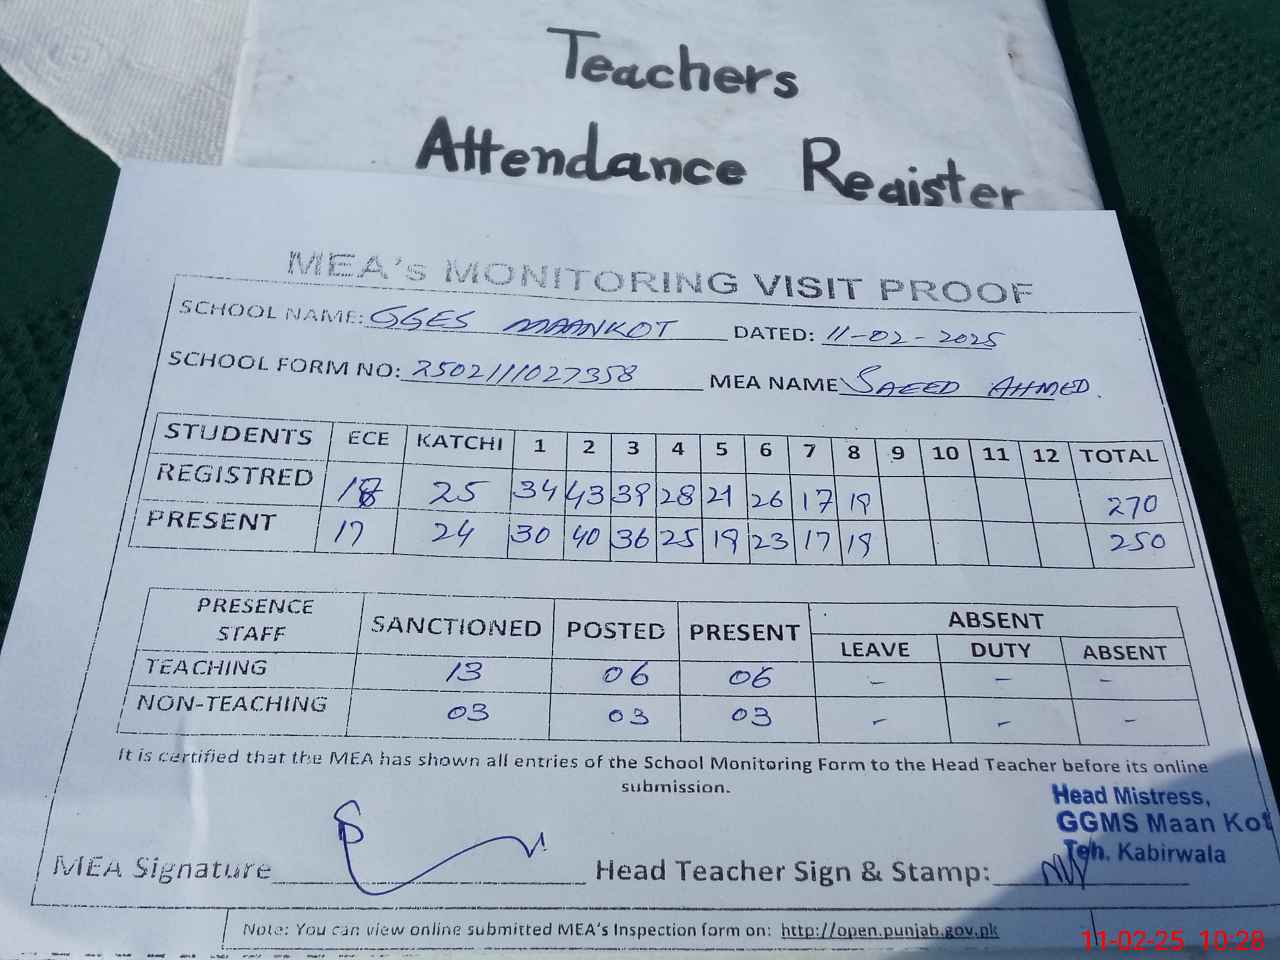 Teachers
Attendance Register
MEA's MONITORING VISIT PROOF
SCHOOL NAME: GGES MAANKOT DATED: 11-02-2025
SCHOOL FORM NO: 2502111027358 MEA NAME SAEED AHMED.
STUDENTS ECE KATCHI 1 2 3 4 5 6 7 8 9 10 11 12 TOTAL
REGISTRED 18 25 34 43 39 28 21 26 17 19 270
PRESENT 17 24 30 40 36 25 19 23 17 19 250
PRESENCE STAFF SANCTIONED POSTED PRESENT ABSENT
LEAVE DUTY ABSENT
TEACHING 13 06 06 - - -
NON-TEACHING 03 03 03 - - -
It is certified that the MEA has shown all entries of the School Monitoring Form to the Head Teacher before its online
submission.
Head Mistress,
GGMS Maan Kot
Teh. Kabirwala
MEA Signature Head Teacher Sign & Stamp:
Note: You can view online submitted MEA's Inspection form on: http://open.punjab.gov.pk
11-02-25 10:28